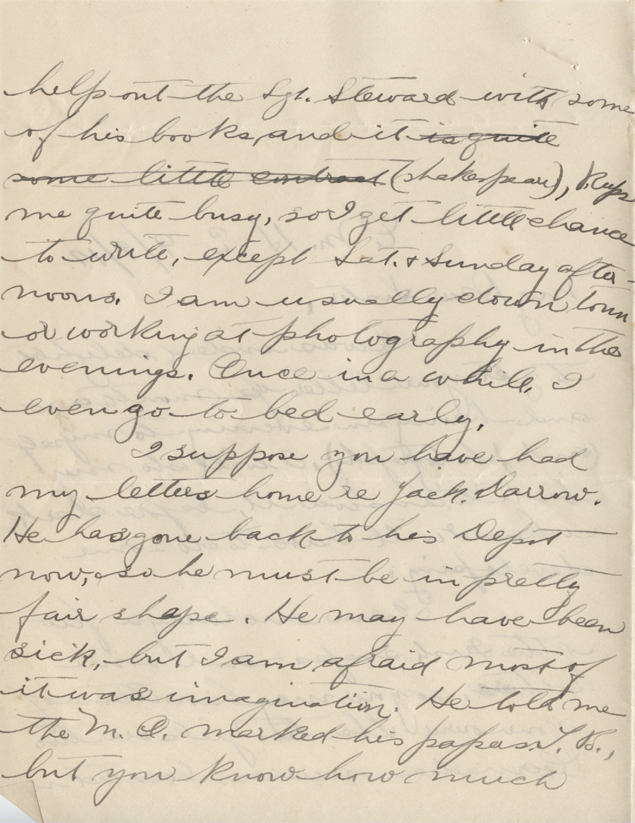 help out the Sgt. Steward with some
of his books, and it is quite
some little contract (shakespear), Keeps
me quite busy, so I get little chance
to write, except Sat. & Sunday after-
noons. I am usually down town
or working at photography in the
evenings. Once in a while I
even go to bed early.
I suppose you have had
my letters home re Jack Darrow.
He has gone back to his Depot
now, so he must be in pretty
fair shape. He may have been
sick, but I am afraid most of
it was imagination. He told me
the M.O. marked his papers T.B.,
but you know how much